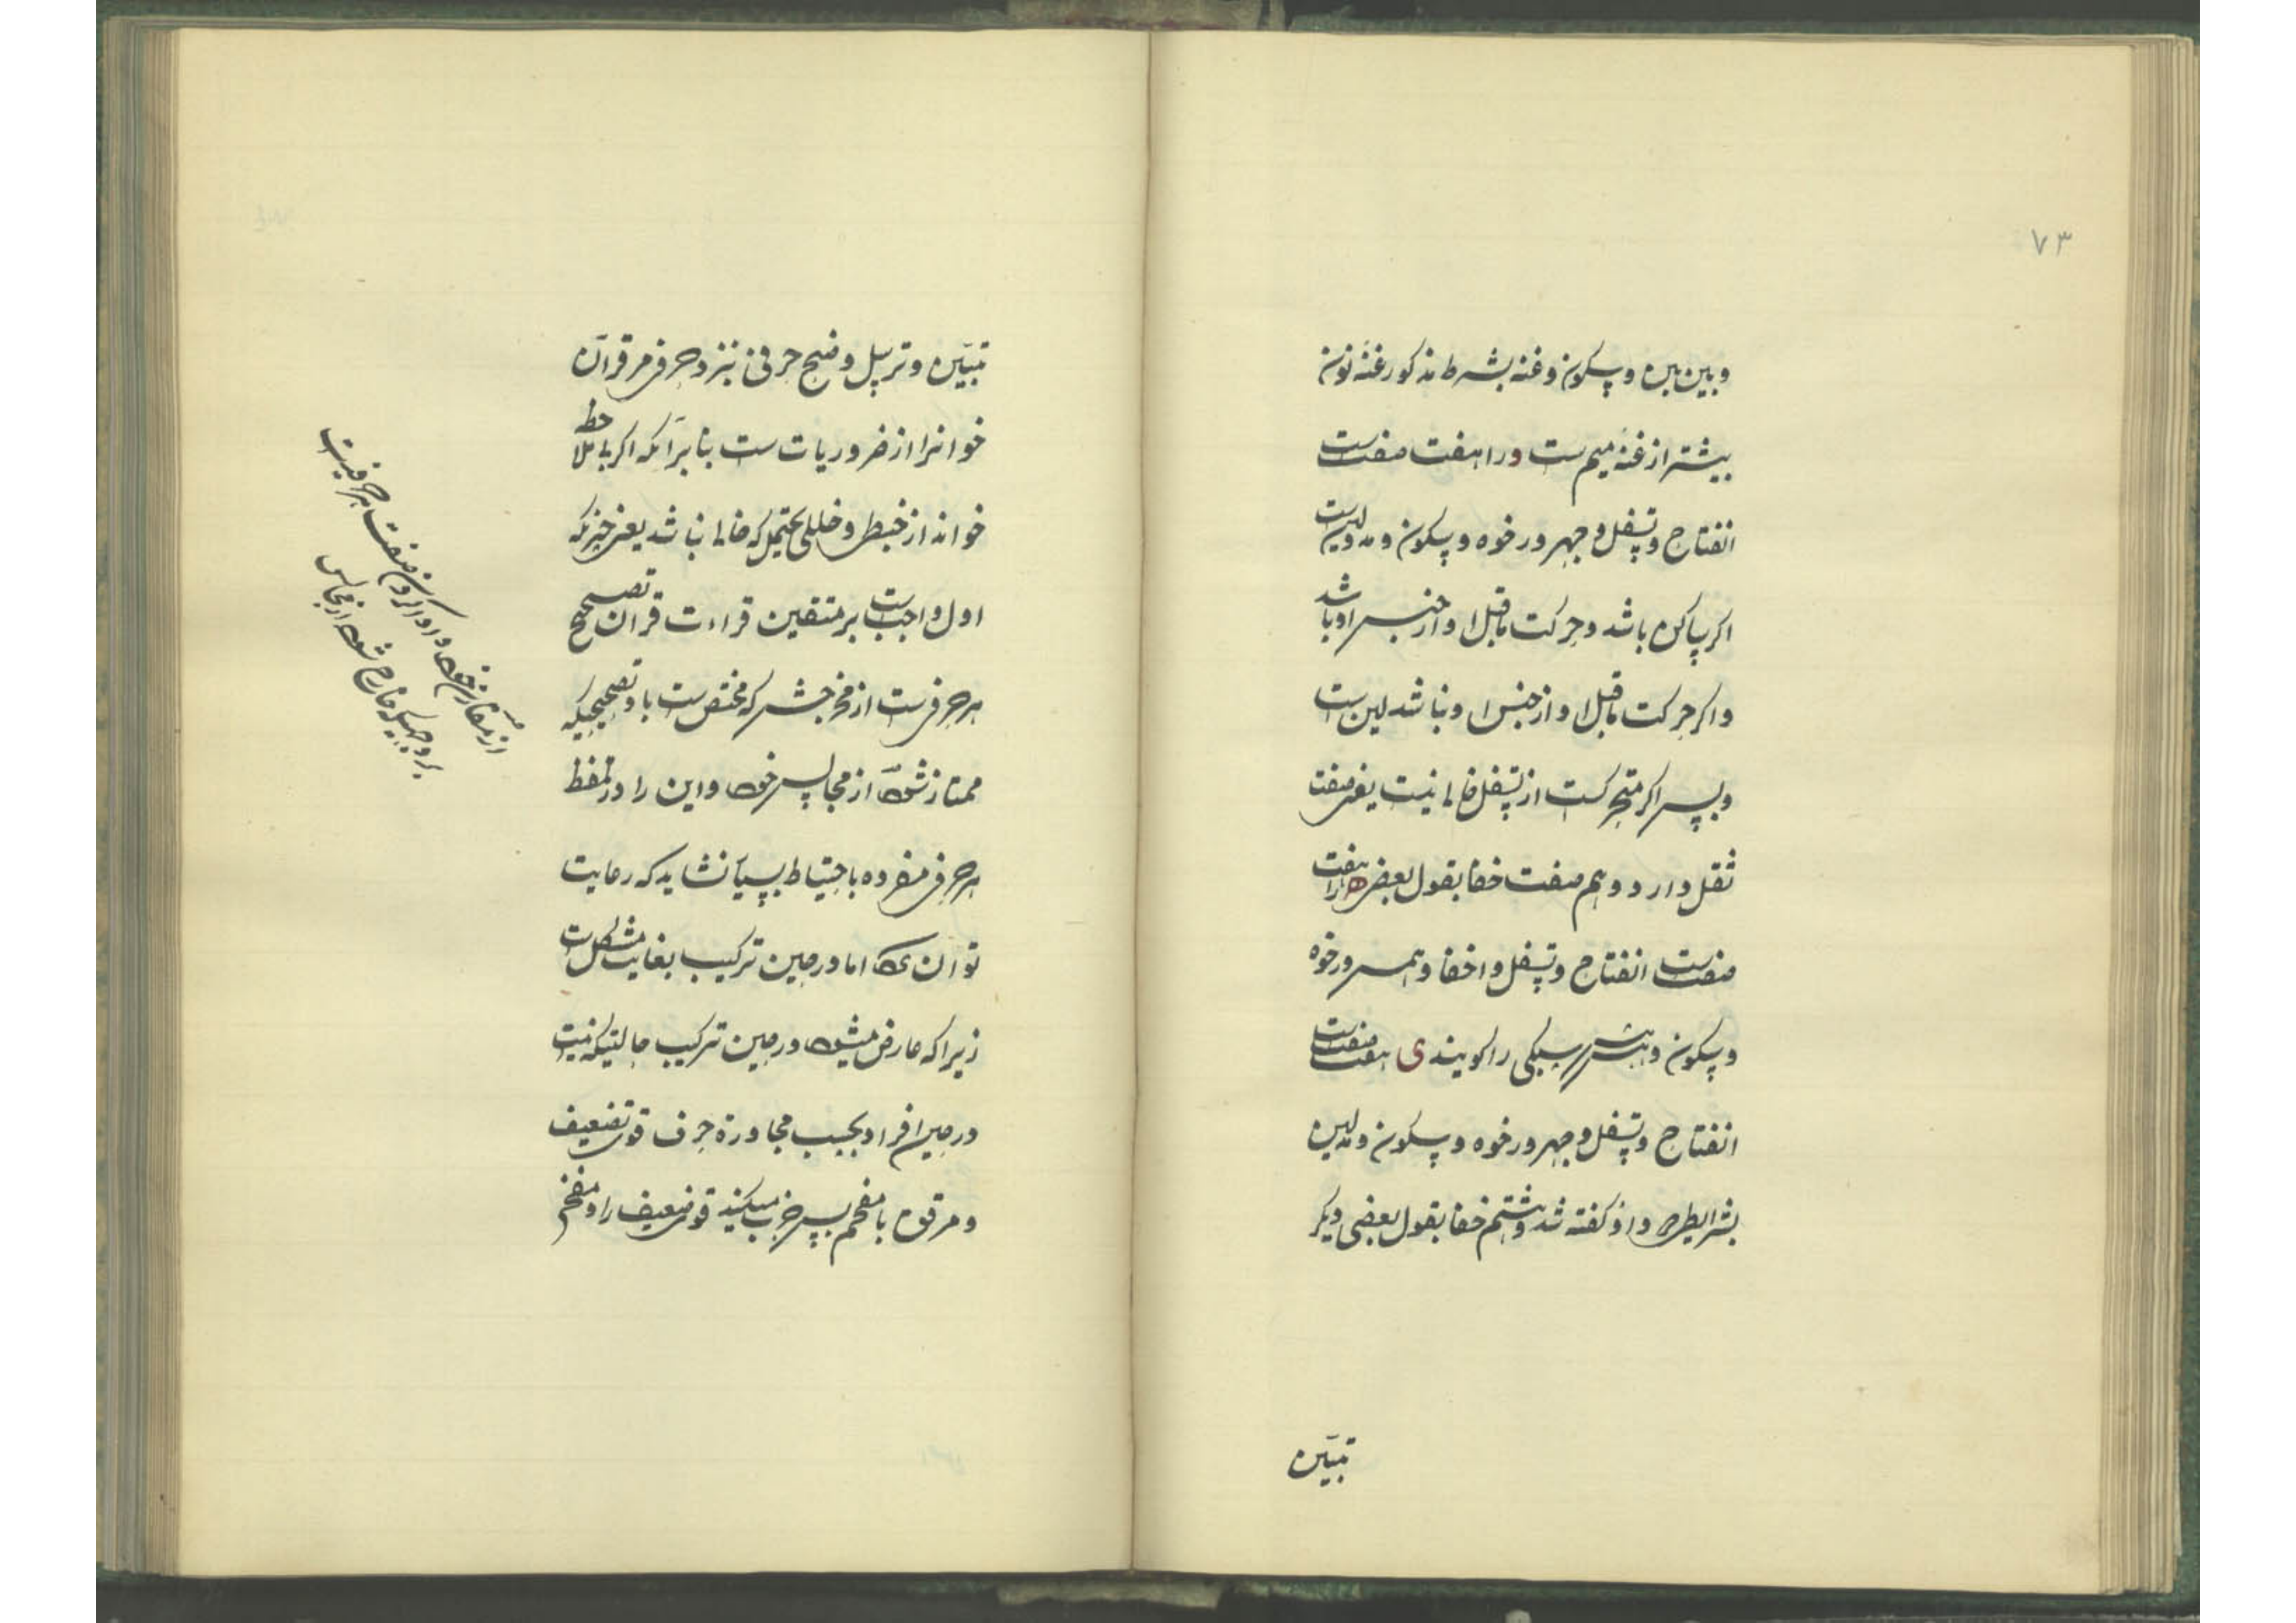 ۷۳
و بین بین و سکون و غنه بشرط مذکور غنّه نون
بیشتر از غنّه میم ست و را هفت صفت ست
انفتاح و تسفل و جهر و رخوه و سکون و مد و لین ست
اگر ساکن باشد و حرکت ماقبل او از جنس او باشد
و اگر حرکت ماقبل او از جنس او نباشد لین ست
و بس اگر متحرکست از تسفل خالی نیست یعنی صفت
ثقل دارد و هم صفت خفا بقول بعضی ه را هفت
صفت ست انفتاح و تسفل و اخفا و همس و رخوه
و سکون و هش سبکی را گویند ی هفت صفت ست
انفتاح و تسفل و جهر و رخوه و سکون و مد لین
بشرایطی که در واو گفته شد و هشتم خفا بقول بعضی دیگر
تبیین
تبیین و ترسیل و ضبح حرفی نیز و حرفی مر قرآن
خوانرا از ضروریات ست بنابر آنکه اگر بی ملاحظه
خواند از خبط و خللی محتمل که خالی نباشد یعنی چیزیکه
اول واجب ست بر متقین قراءت قرآن تصحیح
هر حرفیست از مخرجش که مختص ست باو تصحیحیکه
ممتاز شود از مجانس خود و این را در تلفظ
هر حرفی منفرده باحتیاط بسیار نشاید که رعایت
توان کرد اما در حین ترکیب بغایت مشکل ست
زیرا که عارض میشود در حین ترکیب حالتیکه نیست
در حین افراد بحسب مجاورة حرف قوی تضعیف
و مرقق با مفخم پس جذب میکنند قوی ضعیف را و مفخم
از مقارنش و ادا کردن صفت هر حرفیست
بر وجهیکه خارج شود از مجانس